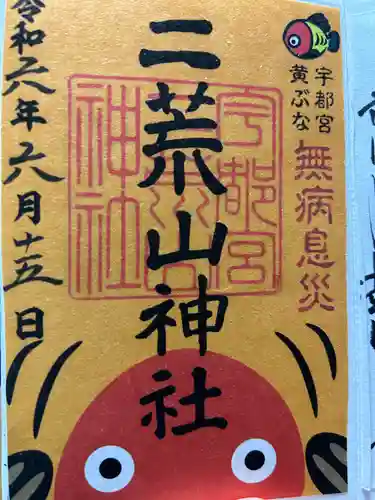 宇都宮
黄ぶな
無病息災
二荒山神社
宇都宮
二荒山
神社
令和六年六月十五日